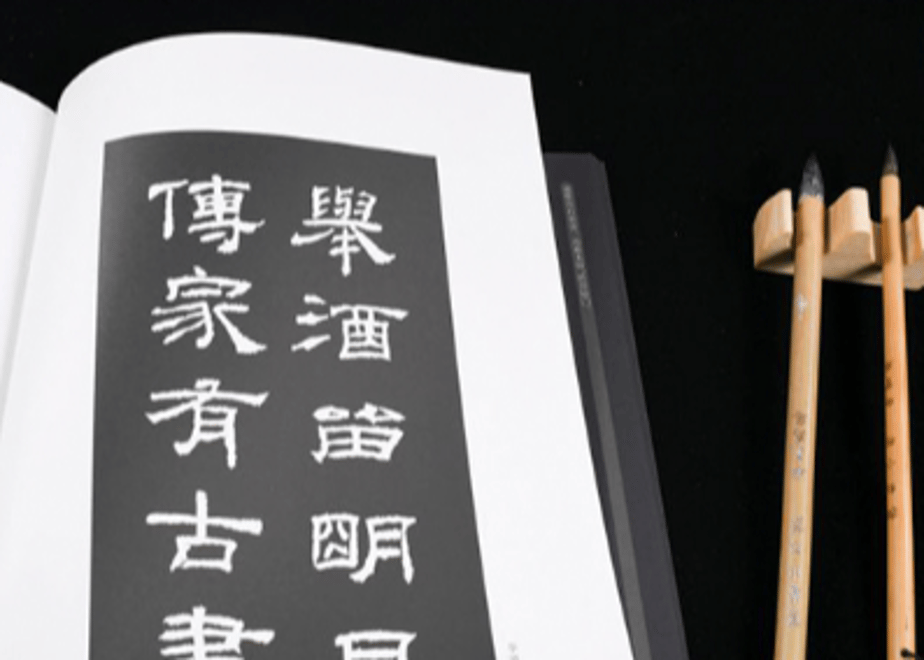 舉酒留明月
傳家有古書